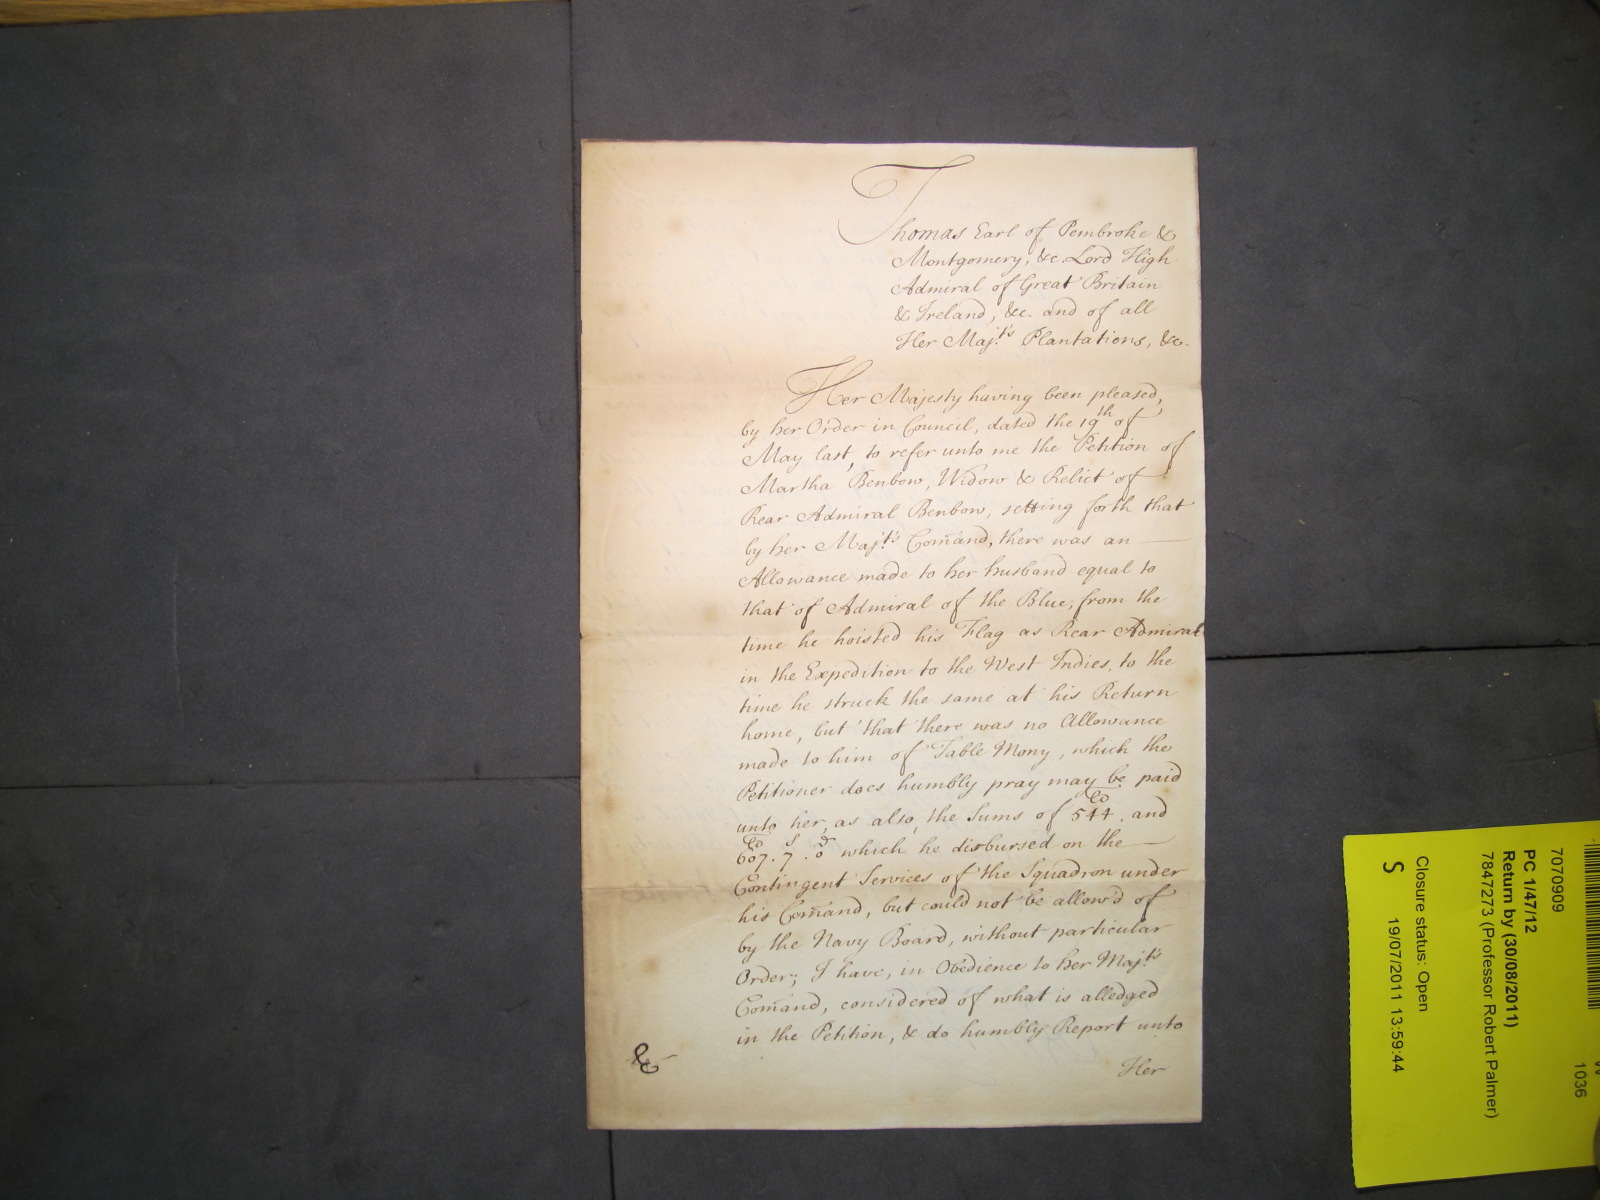 Thomas Earl of Pembroke &
Montgomery, &c. Lord High
Admiral of Great Britain
& Ireland, &c. and of all
Her Maj.ts Plantations, &c.
Her Majesty having been pleased,
by her Order in Council, dated the 19th of
May last, to refer unto me the Petition of
Martha Benbow, Widow & Relict of
Rear Admiral Benbow, setting forth that
by her Maj.ts Com̄and, there was an
Allowance made to her husband equal to
that of Admiral of the Blue, from the
time he hoisted his Flag as Rear Admiral
in the Expedition to the West Indies, to the
time he struck the same at his Return
home, but that there was no Allowance
made to him of Table Mony, which the
Petitioner does humbly pray may be paid
unto her, as also, the Sums of 544. and
607. 7. 0 which he disbursed on the
Contingent Services of the Squadron under
his Com̄and, but could not be allow'd of
by the Navy Board, without particular
Order; I have, in Obedience to her Maj.ts
Com̄and, considered of what is alledged
in the Petition, & do humbly Report unto
Her
7070909
1036
PC 1/47/12
Return by (30/08/2011)
7847273 (Professor Robert Palmer)
Closure status: Open
S
19/07/2011 13:59:44